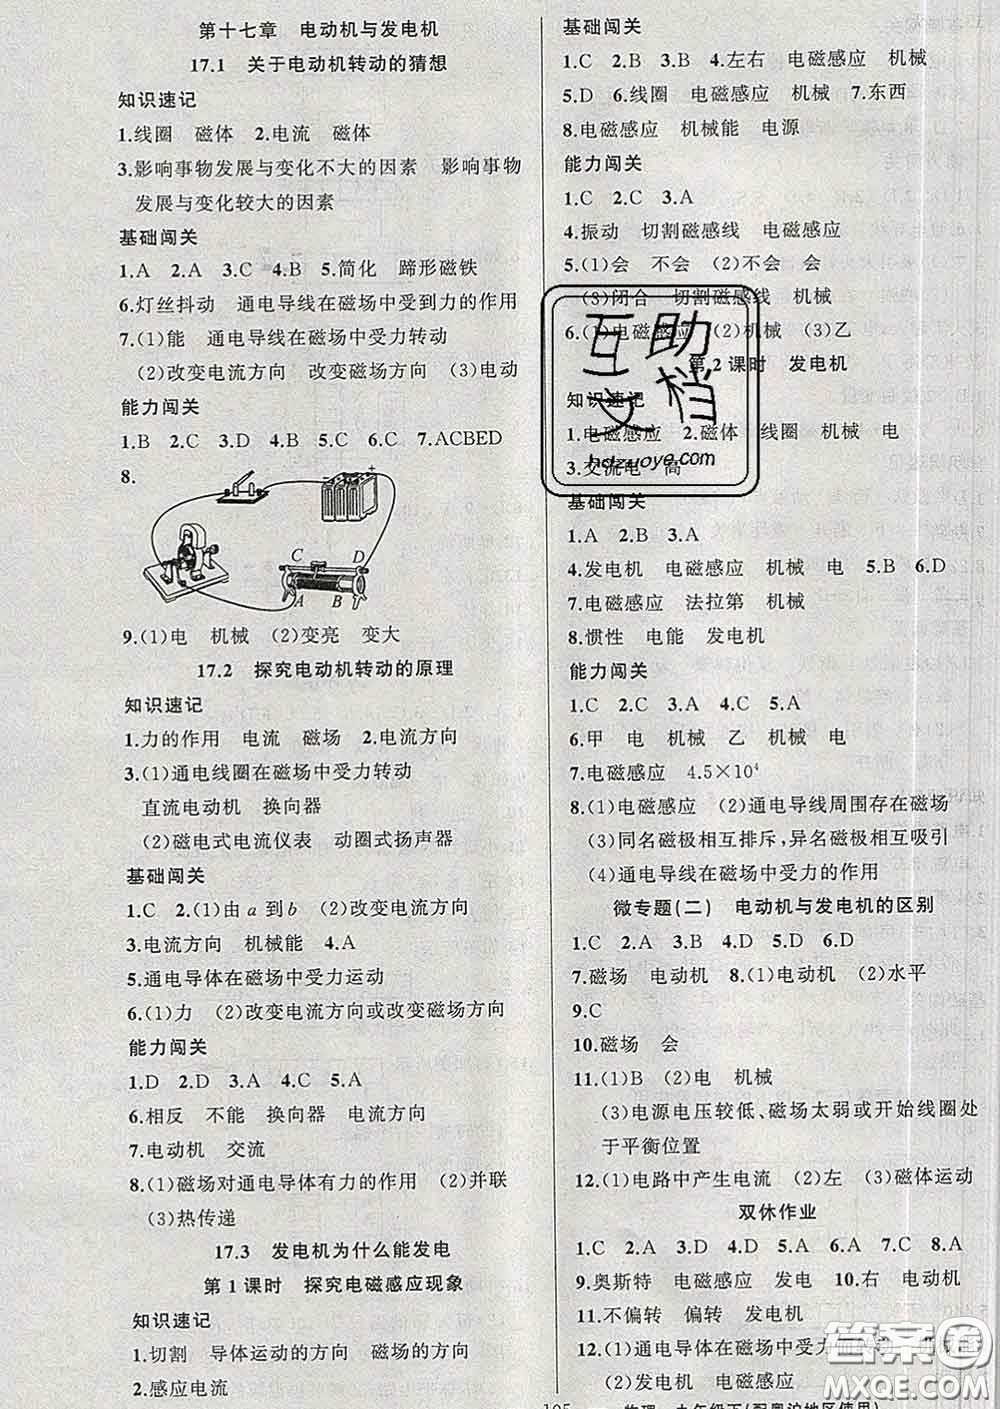 第十七章 电动机与发电机
17.1 关于电动机转动的猜想
知识速记
1.线圈 磁体 2.电流 磁体
3.影响事物发展与变化不大的因素 影响事物
发展与变化较大的因素
基础闯关
1.A 2.A 3.C 4.B 5.简化 蹄形磁铁
6.灯丝抖动 通电导线在磁场中受到力的作用
7.(1)能 通电导线在磁场中受力转动
(2)改变电流方向 改变磁场方向 (3)电动
能力闯关
1.B 2.C 3.D 4.B 5.C 6.C 7.ACBED
8.
C D
A B
9.(1)电 机械 (2)变亮 变大
17.2 探究电动机转动的原理
知识速记
1.力的作用 电流 磁场 2.电流方向
3.(1)通电线圈在磁场中受力转动
直流电动机 换向器
(2)磁电式电流仪表 动圈式扬声器
基础闯关
1.C 2.(1)由a到b (2)改变电流方向
3.电流方向 机械能 4.A
5.通电导体在磁场中受力运动
6.(1)力 (2)改变电流方向或改变磁场方向
能力闯关
1.D 2.D 3.A 4.C 5.A
6.相反 不能 换向器 电流方向
7.电动机 交流
8.(1)磁场对通电导体有力的作用 (2)并联
(3)热传递
17.3 发电机为什么能发电
第1课时 探究电磁感应现象
知识速记
1.切割 导体运动的方向 磁场的方向
2.感应电流
基础闯关
1.C 2.B 3.B 4.左右 电磁感应 机械
5.D 6.线圈 电磁感应 机械 7.东西
8.电磁感应 机械能 电源
能力闯关
1.C 2.C 3.A
4.振动 切割磁感线 电磁感应
5.(1)会 不会 (2)不会 会
(3)闭合 切割磁感线 机械
6.(1)电磁感应 (2)机械 (3)乙
第2课时 发电机
知识速记
1.电磁感应 2.磁体 线圈 机械 电
3.交流电 高
互助文档
hdzuoye.com
基础闯关
1.A 2.B 3.A
4.发电机 电磁感应 机械 电 5.B 6.D
7.电磁感应 法拉第 机械
8.惯性 电能 发电机
能力闯关
1.C 2.C 3.A 4.C 5.A
6.甲 电 机械 乙 机械 电
7.电磁感应 4.5×10⁴
8.(1)电磁感应 (2)通电导线周围存在磁场
(3)同名磁极相互排斥,异名磁极相互吸引
(4)通电导线在磁场中受力的作用
微专题(二) 电动机与发电机的区别
1.C 2.A 3.B 4.D 5.D 6.D
7.磁场 电动机 8.(1)电动机 (2)水平
9.C
10.磁场 会
11.(1)B (2)电 机械
(3)电源电压较低、磁场太弱或开始线圈处
于平衡位置
12.(1)电路中产生电流 (2)左 (3)磁体运动
双休作业
1.C 2.A 3.D 4.D 5.A 6.A 7.C 8.A
9.奥斯特 电磁感应 发电 10.右 电动机
11.不偏转 偏转 发电机
12.(1)通电导体在磁场中受力 电动机
(2)发电机 电磁感应
答案圈
MXQE.COM
105 物理 九年级下(配粤沪地区使用)